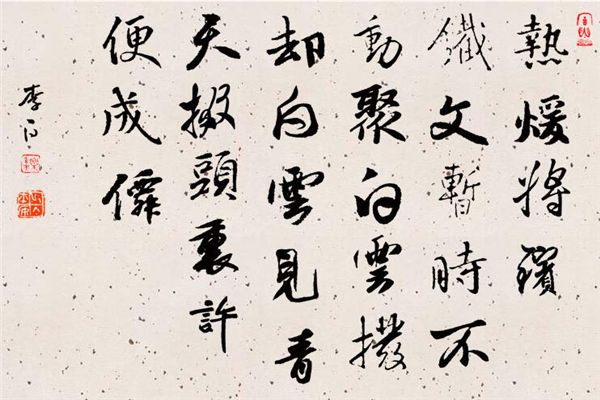 熱煖將鑌
鐵文暫時不
動聚白雲撥
却白雲見青
天掇頭裏許
便成僊
李